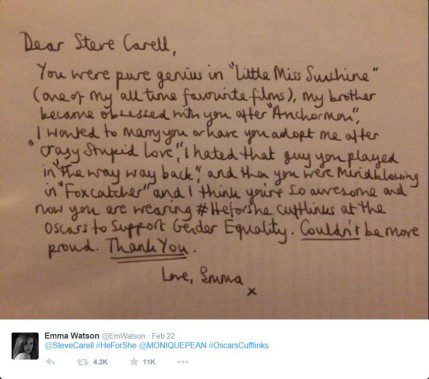 Dear Steve Carell,
You were pure genius in "Little Miss Sunshine"
(one of my all time favourite films), my brother
became obsessed with you after "Anchorman",
I wanted to marry you or have you adopt me after
"Crazy Stupid Love", I hated that guy you played
in "the way way back", and then you were Mindblowing
in "Foxcatcher" and I think you're so awesome and
now you are wearing #Heforshe cufflinks at the
Oscars to support Gender Equality. Couldn't be more
proud. Thank You.
Love, Emma
x
Emma Watson @EmWatson · Feb 22
@SteveCarell #HeForShe @MONIQUEPEAN #OscarsCufflinks
4.2K 11K